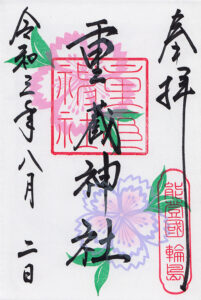 奉拝
能登國 輪島
重蔵神社
重蔵神社
令和三年八月 二日